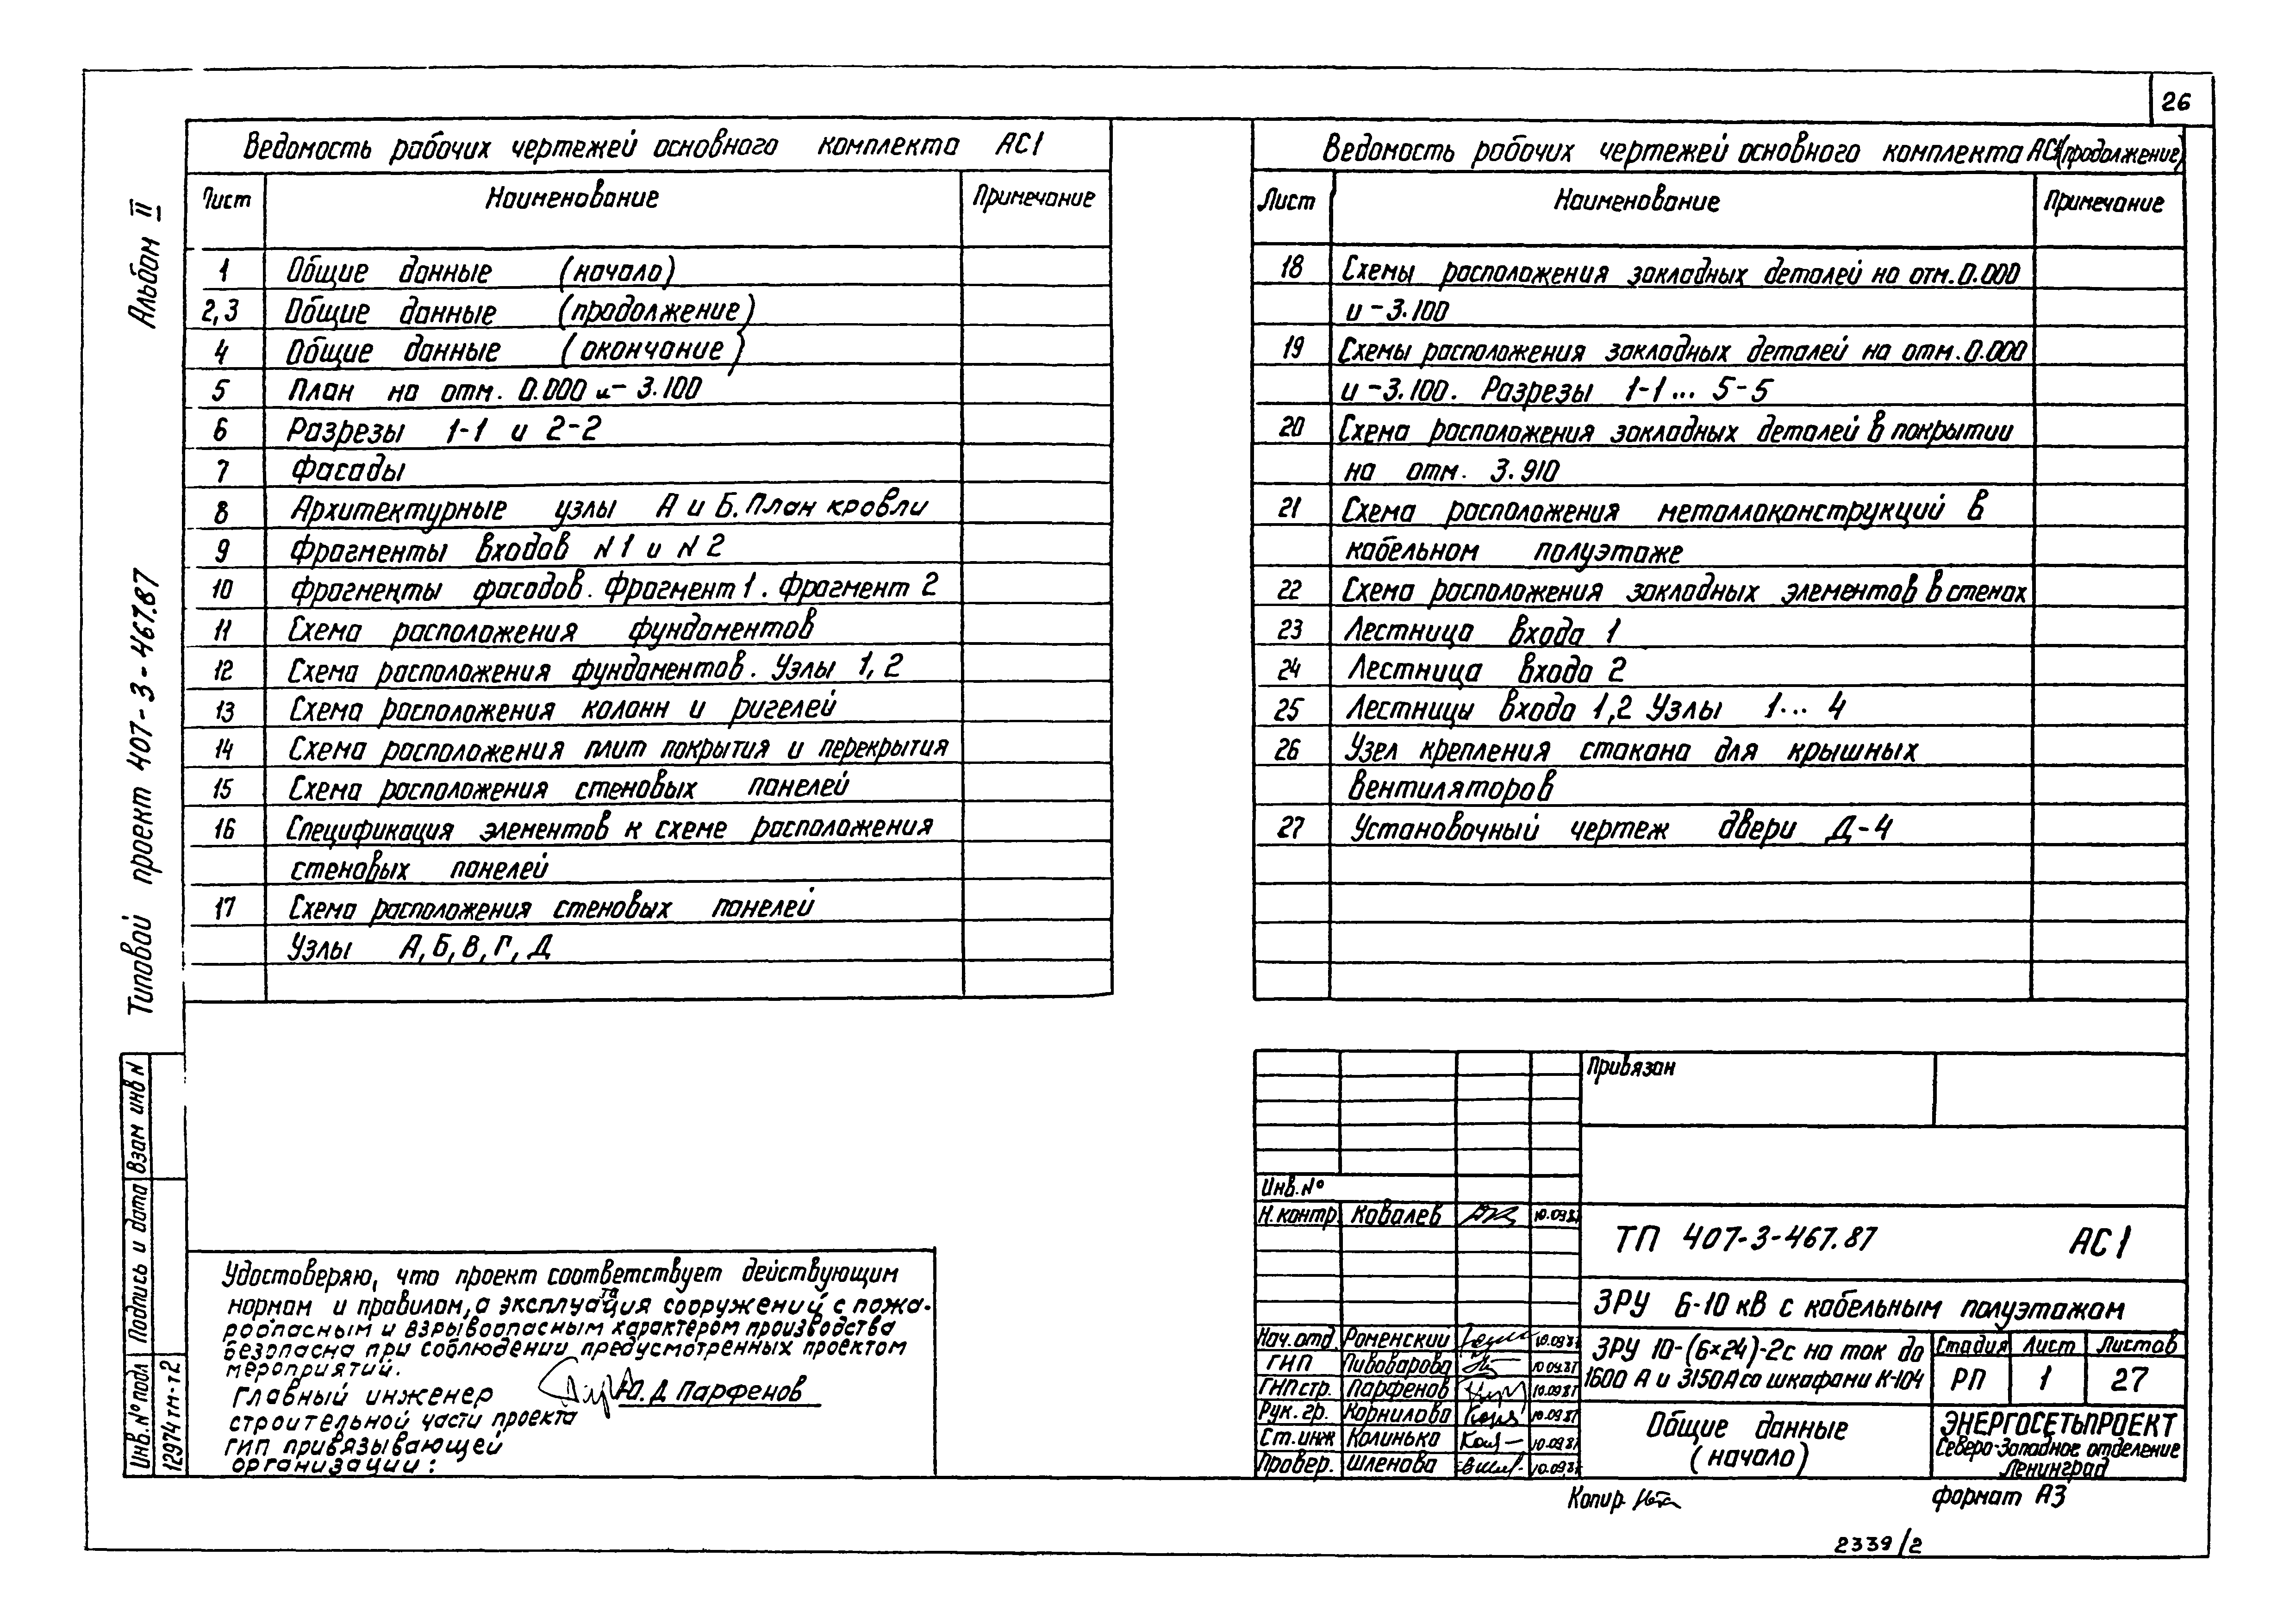 26
Альбом II
Типовой проект 407-3-467.87
Ведомость рабочих чертежей основного комплекта АС1
Лист Наименование Примечание
1 Общие данные (начало)
2,3 Общие данные (продолжение)
4 Общие данные (окончание)
5 План на отм. 0.000 и -3.100
6 Разрезы 1-1 и 2-2
7 Фасады
8 Архитектурные узлы А и Б. План кровли
9 Фрагменты входов N1 и N2
10 Фрагменты фасадов. Фрагмент 1. Фрагмент 2
11 Схема расположения фундаментов
12 Схема расположения фундаментов. Узлы 1, 2
13 Схема расположения колонн и ригелей
14 Схема расположения плит покрытия и перекрытия
15 Схема расположения стеновых панелей
16 Спецификация элементов к схеме расположения
стеновых панелей
17 Схема расположения стеновых панелей
Узлы А, Б, В, Г, Д
Ведомость рабочих чертежей основного комплекта АС1(продолжение)
Лист Наименование Примечание
18 Схемы расположения закладных деталей на отм. 0.000
и -3.100
19 Схемы расположения закладных деталей на отм. 0.000
и -3.100. Разрезы 1-1... 5-5
20 Схема расположения закладных деталей в покрытии
на отм. 3.910
21 Схема расположения металлоконструкций в
кабельном полуэтаже
22 Схема расположения закладных элементов в стенах
23 Лестница входа 1
24 Лестница входа 2
25 Лестницы входа 1,2 Узлы 1... 4
26 Узел крепления стакана для крышных
вентиляторов
27 Установочный чертеж двери Д-4
Взам инв N
Подпись и дата
Инв. N° подл
12974тм-т2
Удостоверяю, что проект соответствует действующим
нормам и правилам, а эксплуатация сооружений с пожа-
роопасным и взрывоопасным характером производства
безопасна при соблюдении предусмотренных проектом
мероприятий.
Главный инженер Ю. Д Парфенов
строительной части проекта
ГИП привязывающей
организации:
Привязан
Инв. N°
Н.контр Ковалев 10.09.87
Нач.отд. Роменский 10.09.87
ГИП Пивоварова 10.09.87
ГИПстр. Парфенов 10.09.87
Рук. гр. Корнилова 10.09.87
Ст.инж Калинько 10.09.87
Провер. Шленова 10.09.87
ТП 407-3-467.87 АС1
ЗРУ 6-10 кВ с кабельным полуэтажам
ЗРУ 10-(6×24)-2с на ток до
1600 А и 3150А со шкафами К-104
Стадия Лист Листов
РП 1 27
Общие данные
(начало)
ЭНЕРГОСЕТЬПРОЕКТ
Северо-Западное отделение
Ленинград
Копир
формат А3
2339/2